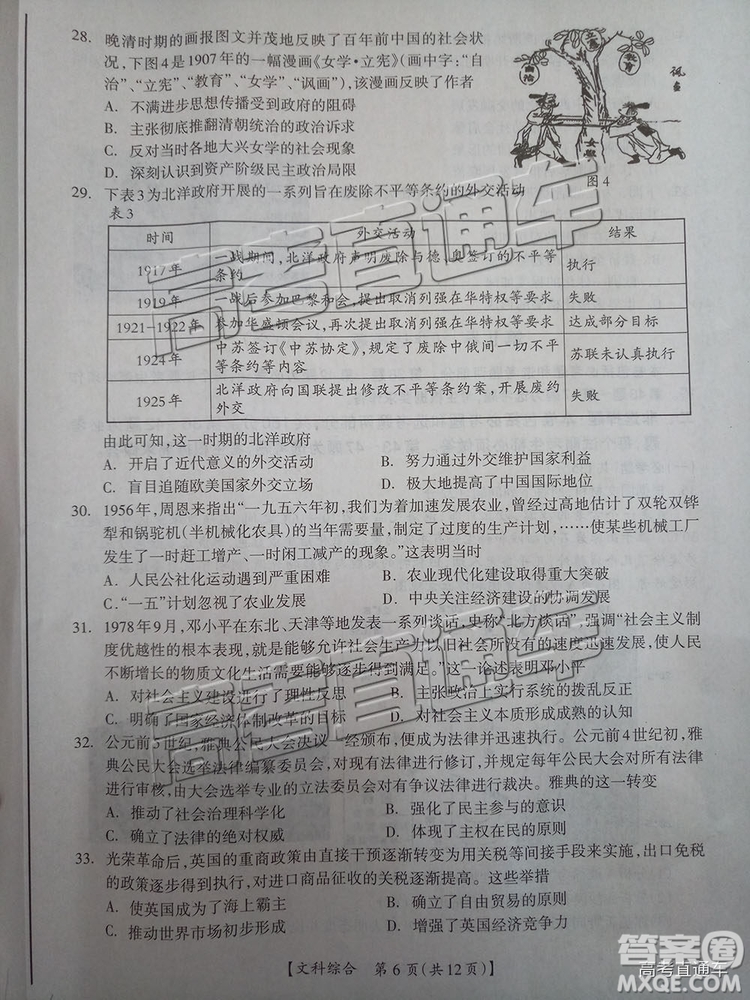 28. 晚清时期的画报图文并茂地反映了百年前中国的社会状
况,下图4是1907年的一幅漫画《女学·立宪》(画中字:“自
治”、“立宪”、“教育”、“女学”、“讽画”),该漫画反映了作者
A. 不满进步思想传播受到政府的阻碍
B. 主张彻底推翻清朝统治的政治诉求
C. 反对当时各地大兴女学的社会思潮
D. 深刻认识到资产阶级民主政治局限
自治
立宪
教育
女学
图4
29. 下表3为北洋政府开展的一系列旨在废除不平等条约的外交活动
表3
时间 外交活动 结果
1917年 一战期间,北洋政府声明废除与德、奥签订的不平等
条约 执行
1919年 一战后参加巴黎和会,提出取消列强在华特权等要求 失败
1921-1922年 参加华盛顿会议,再次提出取消列强在华特权等要求 达成部分目标
1924年 中苏签订《中苏协定》,规定了废除中俄间一切不平
等条约等内容 苏联未认真执行
1925年 北洋政府向国联提出修改不平等条约案,开展废约
外交 失败
由此可知,这一时期的北洋政府
A. 开启了近代意义的外交活动 B. 努力通过外交维护国家利益
C. 盲目追随欧美国家外交立场 D. 极大地提高了中国国际地位
30. 1956年,周恩来指出“一九五六年初,我们为着加速发展农业,曾经过高地估计了双轮双铧
犁和锅驼机(半机械化农具)的当年需要量,制定了过度的生产计划,……使某些机械工厂
发生了一时赶工增产、一时闲工减产的现象。”这表明当时
A. 人民公社化运动遇到严重困难 B. 农业现代化建设取得重大突破
C. “一五”计划忽视了农业发展 D. 中央关注经济建设的冒进倾向
31. 1978年9月,邓小平在东北、天津等地发表一系列谈话,史称“北方谈话”,强调“社会主义制
度优越性的根本表现,就是能够允许社会生产力以旧社会所没有的速度迅速发展,使人民
不断增长的物质文化生活需要能够逐步得到满足。”这一论述表明邓小平
A. 对社会主义建设进行了理性反思 B. 主张政治上实行系统的拨乱反正
C. 明确了国家经济体制改革的目标 D. 对社会主义本质形成成熟的认知
32. 公元前5世纪,雅典公民大会决议一经颁布,便成为法律并迅速执行。公元前4世纪初,雅
典公民大会选举法律编纂委员会,对现有法律进行修订和完善,并规定每年公民大会对所有法律
进行审核,由大会选举专业的立法委员会对有争议法律进行裁决。雅典的这一转变
A. 推动了社会治理科学化 B. 强化了民主参与的意识
C. 确立了法律的绝对权威 D. 体现了主权在民的原则
33. 光荣革命后,英国的重商政策由直接干预逐渐转变为用关税等间接手段来实施,出口免税
的政策逐步得到执行,对进口商品征收的关税逐渐提高。这些举措
A. 使英国成为了海上霸主 B. 确立了自由贸易的原则
C. 推动世界市场初步形成 D. 增强了英国经济竞争力
【文科综合 第6页(共12页)】
高考直通车
高考直通车
高考直通车
答案圈
MXQE.COM